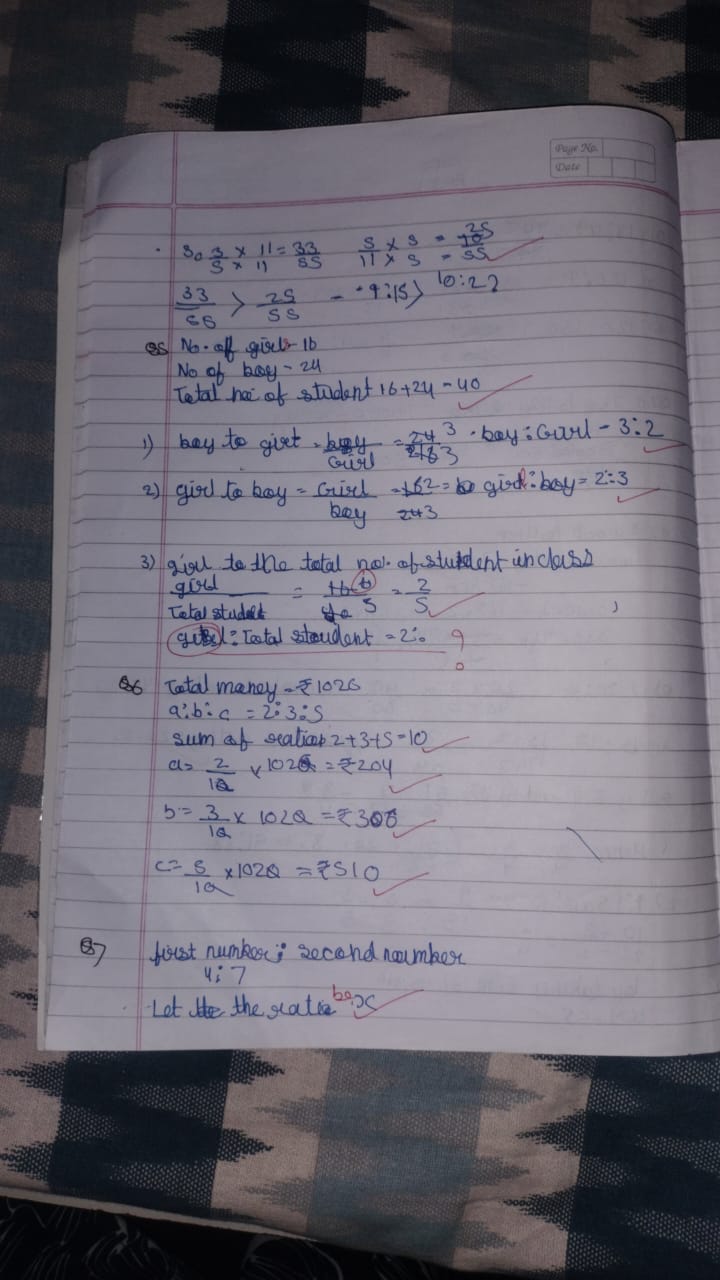 Page No.
Date
So 3/5 × 11/11 = 33/55 5/11 × 5/5 = 25/55
33/55 > 25/55 - 9:15 > 10:22
Q5 No. of girls - 16
No of boy - 24
Total no of student 16+24 - 40
1) boy to girl = boy/Girl = 24 3 boy : Girl - 3:2
2) girl to boy = Girl/boy = 16 2/24 3 = girl : boy = 2:3
3) girl to the total no. of student in class
girl/Total student = 16/40 5 = 2/5
girl : Total student = 2: ?
Q6 Total money = ₹1020
a:b:c = 2:3:5
sum of ratios 2+3+5=10
a = 2/10 × 1020 = ₹204
b = 3/10 × 1020 = ₹306
c = 5/10 × 1020 = ₹510
Q7 first number : second number
4:7
Let the ratio be x